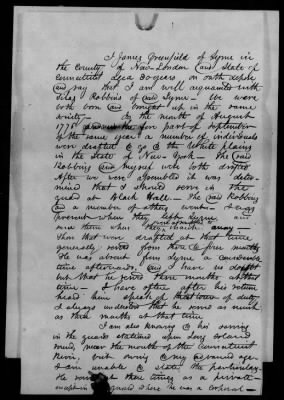 I James Greenfield of Lyme in
the County of New London and State of
Connecticut aged 80 years, on oath depose
and say that I am well acquainted with
Silas Robbins of said Lyme - We were
both born and brought up in the same
society - In the month of August
1776 or the fore part of September
of the same year a number of individuals
were drafted to go to the White plains
in the State of New-York - The said
Robbins and myself were both drafted
After we were assembled it was deter-
mined that I should serve in the
guard at Black Hall - The said Robbins
and a number of others went - I was
present when they left Lyme and
saw them when they march away -
Those that were drafted at that time
generally served from three to four months
He was about from Lyme a considerable
time afterwards, and I have no doubt
but that he served three months at that
time - I have often after his return
heard him speak of that tour of duty
I always understood that he served as much
as three months at that time
I am also knowing to his serving
in the guards stationed upon Long Island
sound, near the mouth of the Connecticut
River, but owing to my advanced age
I am unable to state the particulars.
He served at these times as a private -
except in the guard where he was a corporal -